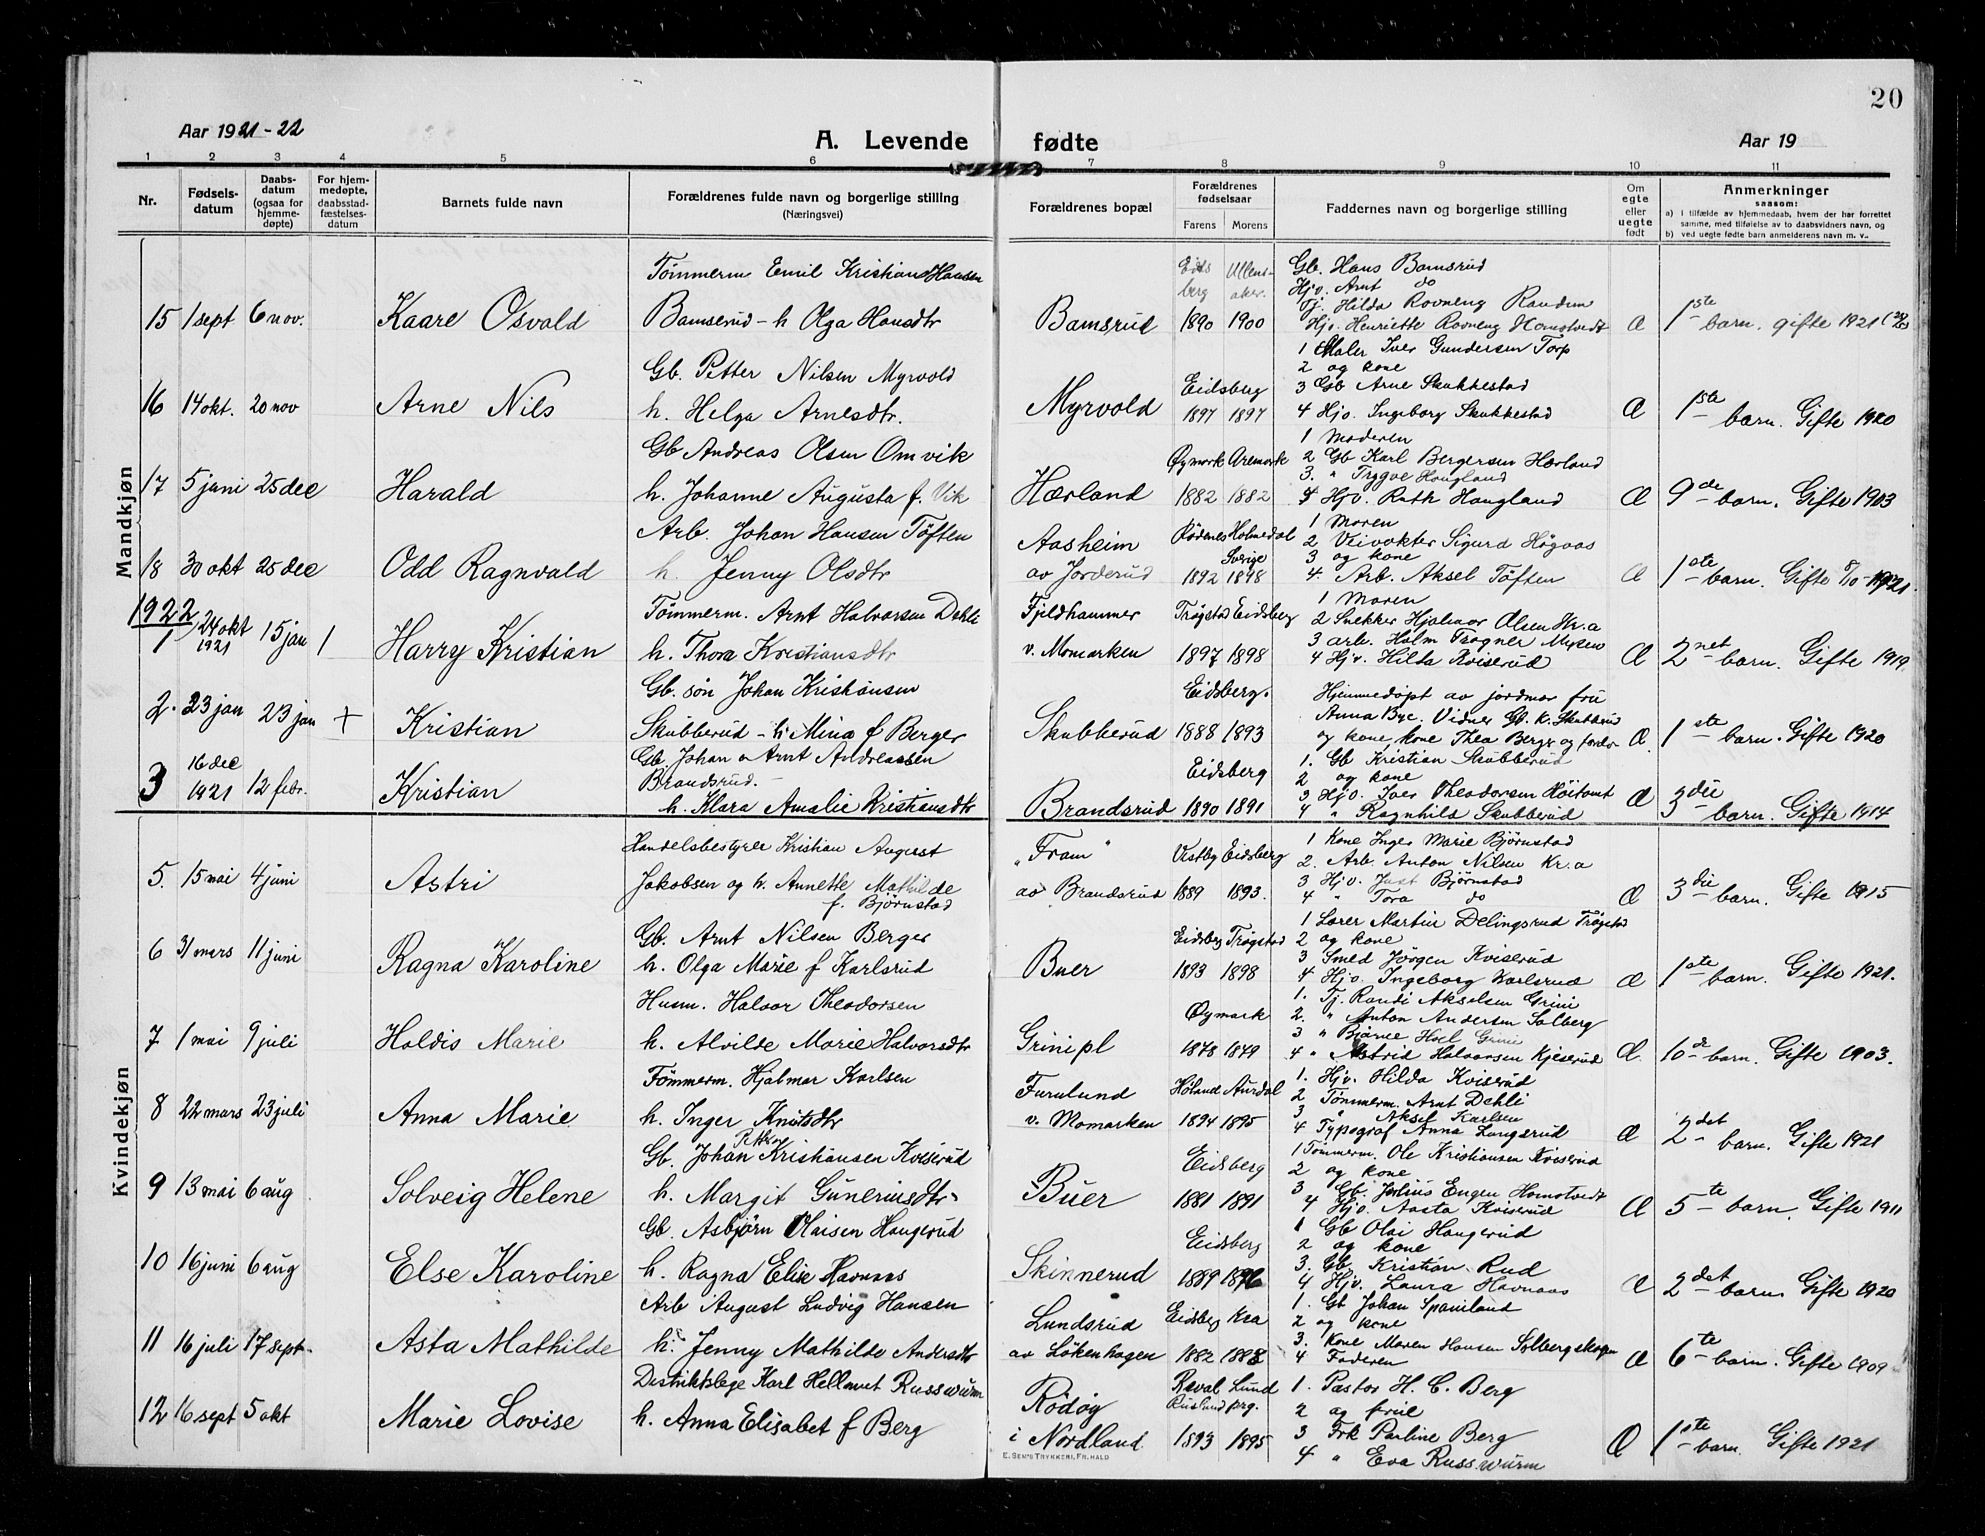 20
Aar 1921-22
A. Levende fødte
Aar 19
1 2 3 4 5 6 7 8 9 10 11
Nr.
Fødsels-
datum
Daabs-
datum
(ogsaa for
hjemme-
døpte)
For hjem-
medøpte,
daabsstad-
fæstelses-
datum
Barnets fulde navn
Forældrenes fulde navn og borgerlige stilling
(Næringsvei)
Forældrenes bopæl
Forældrenes
fødselsaar
Farens Morens
Faddernes navn og borgerlige stilling
Om
egte
eller
uegte
født
Anmerkninger
saasom:
a) i tilfælde av hjemmedaab, hvem der har forrettet
samme, med tilføielse av to daabsvidners navn, og
b) ved uegte fødte barn anmelderens navn m. v..
Mandkjøn
15 1 sept 6 nov. Kaare Osvald
Tömmerm Emil Kristian Hansen
Bamserud - h Olga Hansdtr
Bamsrud
Eids
berg
Ullens-
aker.
1890 1900
Gb. Hans Bamsrud
Hjv. Arnt do
Tj. Hilda Rovneng Randem
Hjv. Henriette Rovneng Homstvedt
Æ 1ste barn. gifte 1921
16 14 okt. 20 nov Arne Nils
Gb. Petter Nilsen Myrvold
h. Helga Arnesdtr.
Myrvold
Eidsberg
1897 1897
1 Maler Iver Gundersen Torp
2 og kone
3 Gb Arne Skukkestad
4 Hjv. Ingeborg Skukkestad
Æ 1ste barn. Gifte 1920
17 5 juni 25 dec Harald
Gb Andreas Olsen Omvik
h. Johanne Augusta f. Vik
Hærland
Øymark Aremark
1882 1882
1 Moderen
2 Gb Karl Bergersen Hærland
3. " Trygve Haugland
4 Hjv. Ruth Haugland
Æ 9de barn. Gifte 1903
18 30 okt 25 dec Odd Ragnvald
Arb. Johan Hansen Töften
h. Jenny Olsdtr
Aasheim
av Jorderud
Rödenes Holmedal
Sverige
1892 1898
1 Moren
2 Veivokter Sigurd Högaas
3 og kone
4. Arb. Aksel Töften
Æ 1ste barn. Gifte 1921.
1922
1 24 okt 1921 15 jan 1 Harry Kristian
Tömmerm. Arnt Halvorsen Dehli
h. Thora Kristiansdtr
Fjeldhammer
v. Momarken
Trögstad Eidsberg
1897 1898
1 Moren
2 Snekker Hjalmar Olsen Kr.a
3 arb. Holm Tragner Mysen
4 Hjv. Hilda Kviserud
Æ 2net barn. Gifte 1919
2. 23 jan 23 jan + Kristian
Gb. sön Johan Kristiansen
Skubberud - h. Mina f Berger
Skubberud
Eidsberg.
1888 1893
Hjemmedöpt av jordmor fru
Anna Bye. Vidner Gb. K. Skubberud
og kone, kone Thea Berger og forældr
Æ. 1ste barn. Gifte 1920
3 16 dec 1921 12 febr. Kristian
Gb. Johan Arnt Andreassen
Brandsrud.
h. Klara Amalie Kristiansdtr
Brandsrud
Eidsberg
1890 1891
1. Gb Kristian Skubberud
2 og kone
3 Hjv. Iver Theodorsen Höitomt
4 " Ragnhild Skubberud
Æ 3die barn. Gifte 1914
Kvindekjøn
5. 15 mai 4 juni Astri
Handelsbestyrer Kristian August
Jakobsen og h. Annette Mathilde
f. Björnstad
"Fram"
av Brandsrud
Vestby Eidsberg
1889 1893.
1 Kone Inger Marie Bjørnstad
2. Arb. Anton Nilsen Kr.a
3 Hjv. Just Bjørnstad
4 " Tora do
Æ 3die barn. Gifte 1915
6 31 mars 11 juni Ragna Karoline
Gb. Arnt Nilsen Berger
h. Olga Marie f Karlsrud
Buer
Eidsberg Trøgstad
1893 1898
1 Lærer Martin Delingsrud Trøgstad
2 og kone
3 Smed Jörgen Kviserud
4 Hjv. Ingeborg Karlsrud
Æ 1ste barn. Gifte 1921.
7 1 mai 9 juli Haldis Marie
Husm. Halvor Theodorsen
h. Alvilde Marie Halvorsdtr
Grini pl
Øymark
1878 1879
1. Tj. Randi Akselsen Grini
2. " Anton Andersen Solberg
3 " Bjarne Hoel Grini
4 " Astrid Halvorsen Kjeserud
Æ. 10de barn. Gifte 1903.
8 22 mars 23 juli Anna Marie
Tömmerm. Hjalmar Karlsen
h. Inger Knutsdtr
Furulund
v. Momarken
Høland Aurdal
1894 1895
1. Hjv. Hilda Kviserud
2 Tømmerm. Arnt Dehli
3 " Aksel Karlsen
4 Typograf Anna Langsrud
Æ 2det barn. Gifte 1921
9 13 mai 6 aug Solveig Helene
Petter
Gb. Johan Kristiansen Kviserud
h. Margit Guneriusdtr.
Buer
Eidsberg
1881 1891
1 Tømmerm. Ole Kristiansen Kviserud
2 og kone
3 Gb. Julius Engen Homstvedt
4 Hjv. Aasta Kviserud
Æ 5te barn. Gifte 1911
10 16 juni 6 aug Else Karoline
Gb. Asbjørn Olaisen Haugerud
h. Ragna Elise Havnaas
Skinnerud
Eidsberg
1889 1896
1 Gb Olai Haugerud
2 og kone
3. Gb. Kristian Rud
4 Hjv. Laura Havnaas
Æ 2det barn. Gifte 1920
11 16 juli 17 sept. Asta Mathilde
Arb August Ludvig Hansen
h. Jenny Mathilde Andersdtr
Lundsrud
av Løkenhagen
Eidsberg Kra
1882 1888
1. Gb Johan Spæniland
2 og kone
3. Kone Maren Hansen Solbergskogen
4 Faderen
Æ 6te barn. Gifte 1909
12 16 sept 5 okt Marie Lovise
Distriktslæge Karl Hellmut Russwurm
h. Anna Elisabet f Berg
Rödöy
i Nordland
Reval Rusland
Lund prg.
1893 1895
1. Pastor H. C. Berg
2 og frue
3 Frk Pauline Berg
4 " Eva Russwurm
Æ 1ste barn. Gifte 1921
E. SEM'S TRYKKERI, FR.HALD